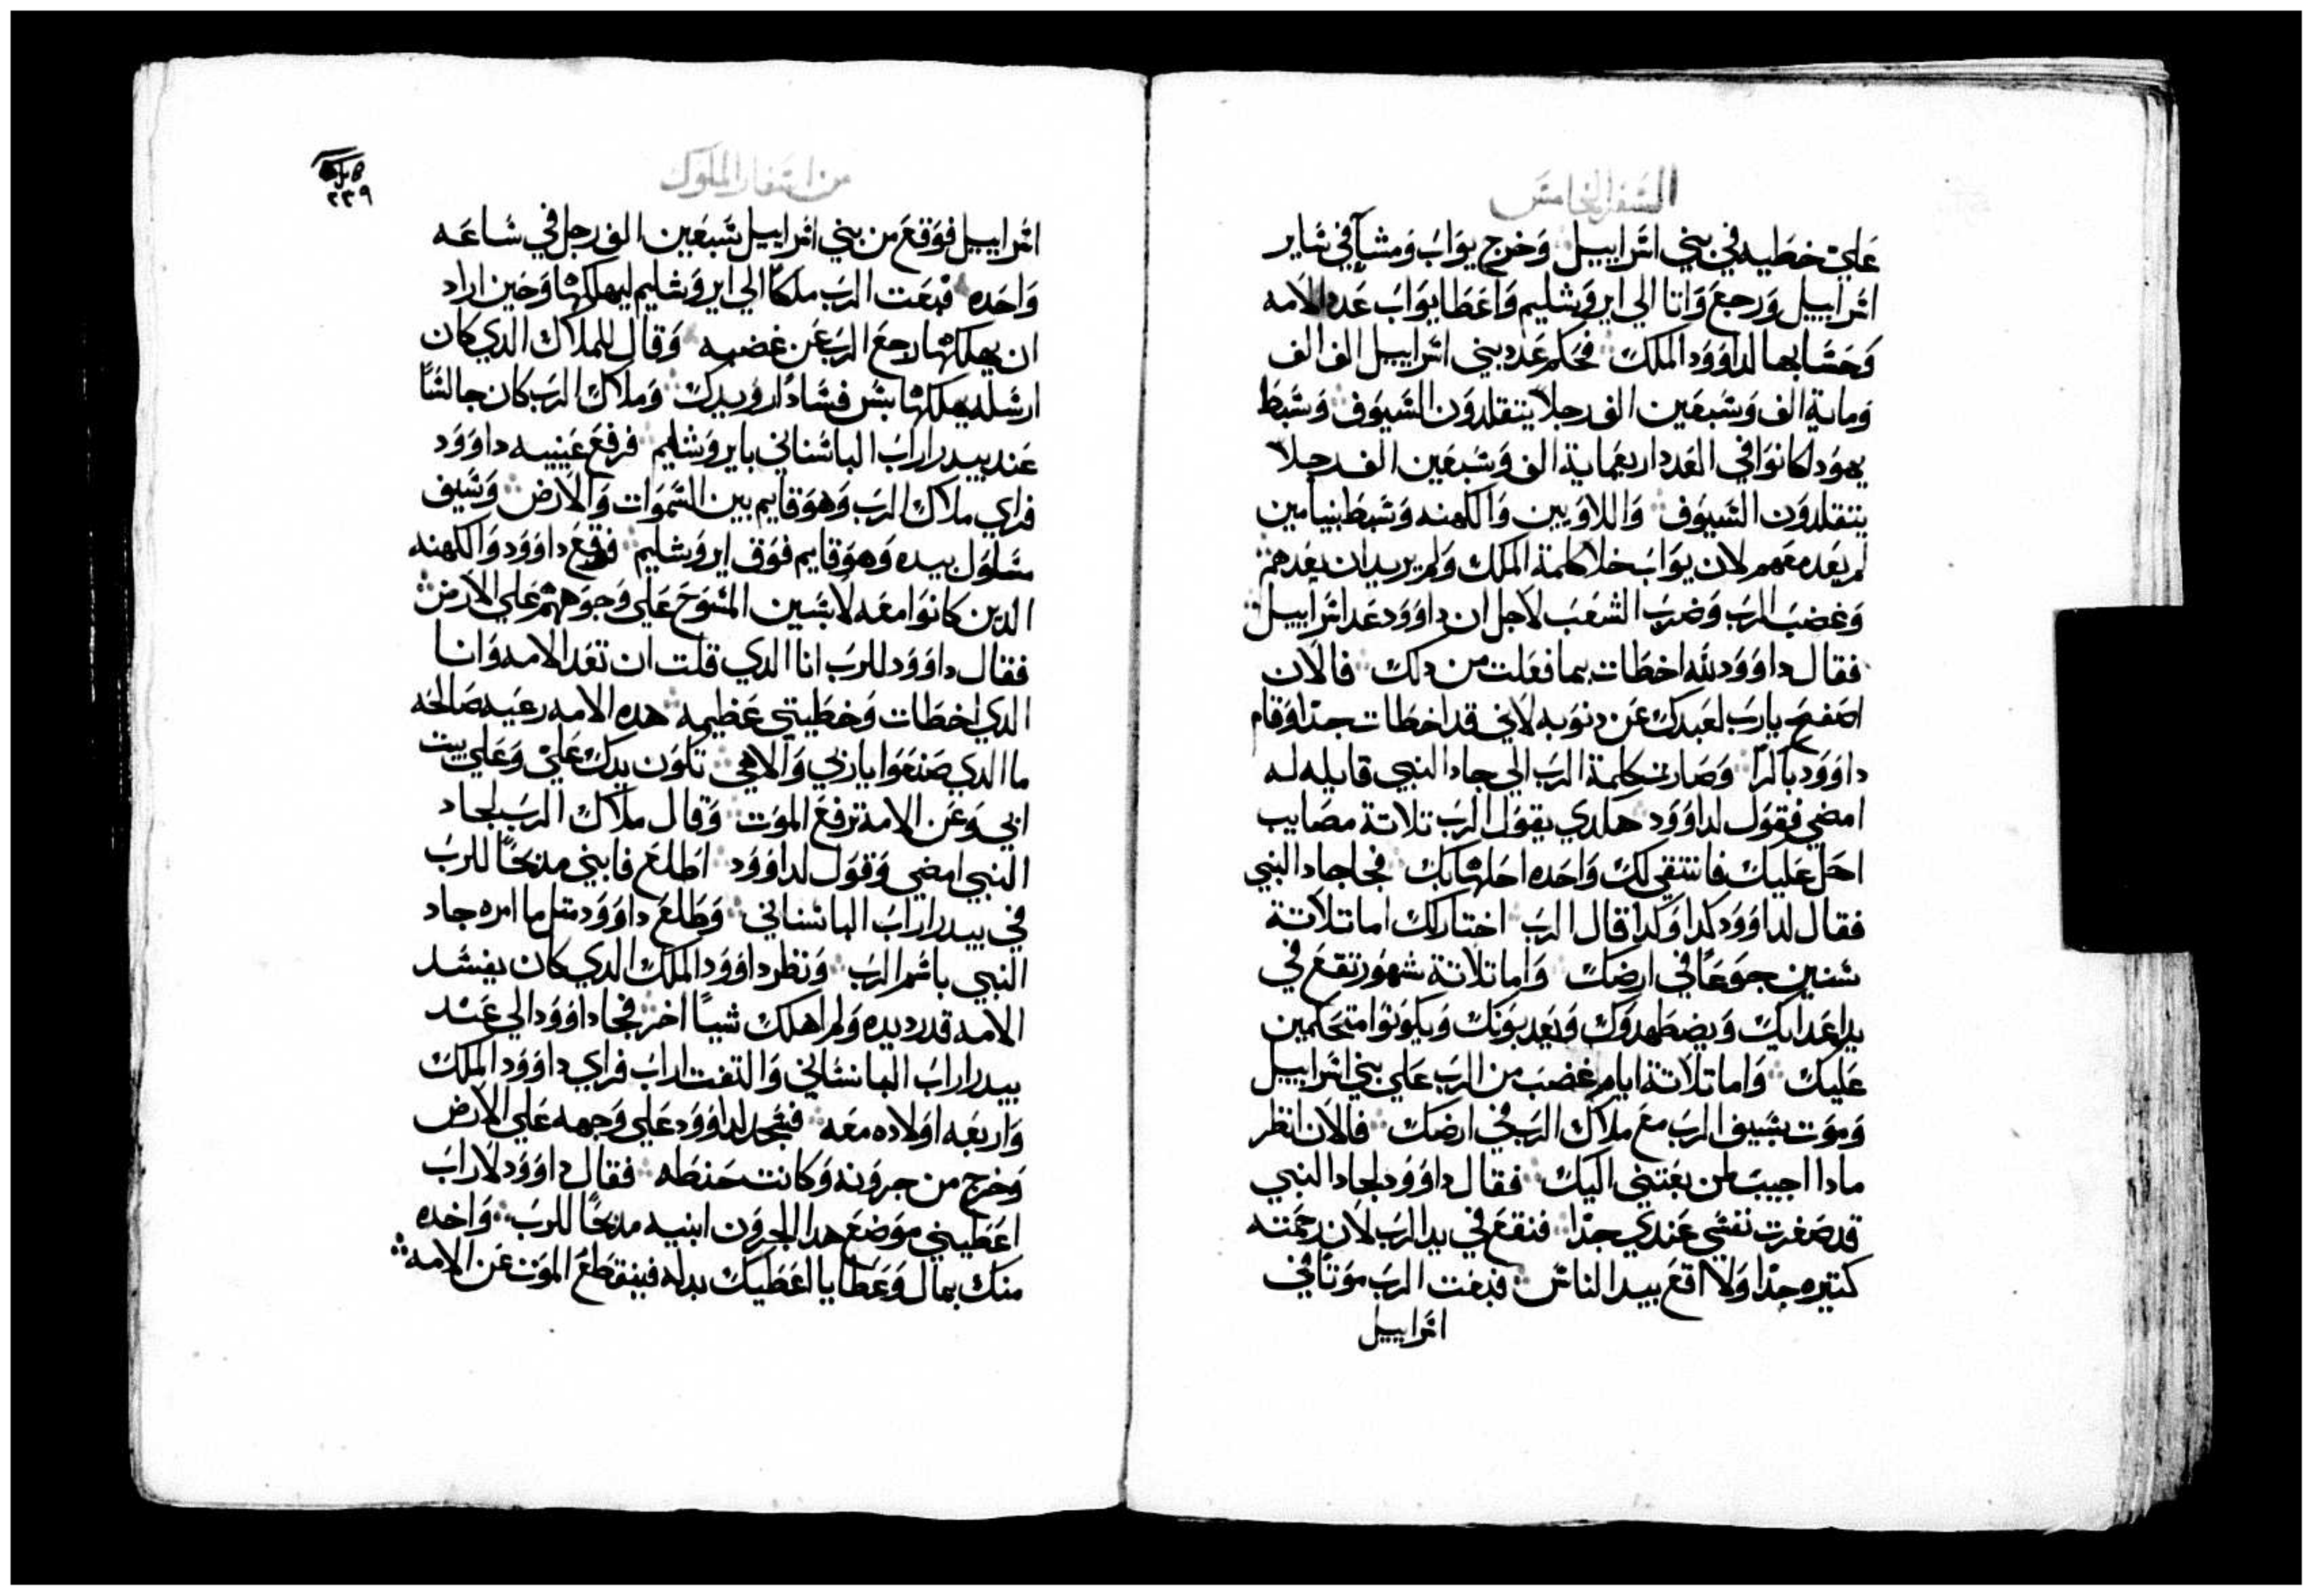 السفر الخامس
علي خطيه في بني اسراييل وخرج يواب ومشا في ساير
اسراييل ورجع واتا الي ايروشليم واعطا يواب عدد الامه
وحسابها لداوود الملك فحكم عدد بني اسراييل الف الف
وماية الف وسبعين الف رجلا يتقلدون السيوف وسبط
يهودا كانوا في العدد اربعماية الف وسبعين الف رجلا
يتقلدون السيوف واللاويين والكهنه وسبط بنيامين
لم يعده معهم لان يواب خلا كلمة الملك ولم يريد ان يعدهم
وغضب الرب وضرب الشعب لاجل ان داوود عد اسراييل
فقال داوود لله اخطات بما فعلت من دلك فالان
اصفح يارب لعبدك عن دنوبه لاني قد اخطات جدا وقام
داوود باكرا وصارت كلمة الرب الي جاد النبي قايله له
امضي فقول لداوود هكدي يقول الرب تلاتة مصايب
احل عليك فانتقي لك واحده احلها بك فجا جاد النبي
فقال لداوود كدا وكدا قال الرب اختار لك اما تلاتة
سنين جوعا في ارضك واما تلاتة شهور تقع في
يد اعدايك ويضطهدوك ويعدبونك ويكونوا متحكمين
عليك واما تلاتة ايام غضب من الرب علي بني اسراييل
وموت بسيف الرب مع ملاك الرب في ارضك فالان انظر
مادا اجيب لمن بعتني اليك فقال داوود لجاد النبي
قد صغرت نفسي عندي جدا فنقع في يد الرب لان رحمته
كتيره جدا ولا اقع بيد الناس فبعت الرب موتا في
اسراييل
من اسفار الملوك
٢٣٩
اسراييل فوقع من بني اسراييل سبعين الف رجل في ساعه
واحده فبعت الرب ملكا الي ايروشليم ليهلكها وحين اراد
ان يهلكها رجع الرب عن غضبه وقال للملاك الدي كان
ارسله يهلكها بس فسادا رويدك وملاك الرب كان جالسا
عند بيدر اراب الباسناني بايروشليم فرفع عينيه داوود
فراي ملاك الرب وهو قايم بين السموات والارض وسيف
مسلول بيده وهو قايم فوق ايروشليم فوقع داوود والكهنه
الدين كانوا معه لابسين المسوح علي وجوههم علي الارض
فقال داوود للرب انا الدي قلت ان تعد الامه وانا
الدي اخطات وخطيتي عظيمه هده الامه رعيه صالحه
ما الدي صنعوا يا ربي والاهي تكون يدك علي وعلي بيت
ابي وعن الامة ترفع الموت وقال ملاك الرب لجاد
النبي امضي وقول لداوود اطلع فابني مدبحا للرب
في بيدر اراب الباسناني وطلع داوود متل ما امره جاد
النبي باسم الرب ونظر داوود الملك الدي كان يفسد
الامه قد رد يده ولم اهلك شيا اخر فجا داوود الي عند
بيدر اراب الباسناني والتفت اراب فراي داوود الملك
واربعه اولاده معه فسجد لداوود علي وجهه علي الارض
وخرج من جرونه وكانت حنطه فقال داوود لاراب
اعطيني موضع هدا الجرون ابنيه مدبحا للرب واخده
منك بمال وعطايا اعطيك بدله فينقطع الموت عن الامه